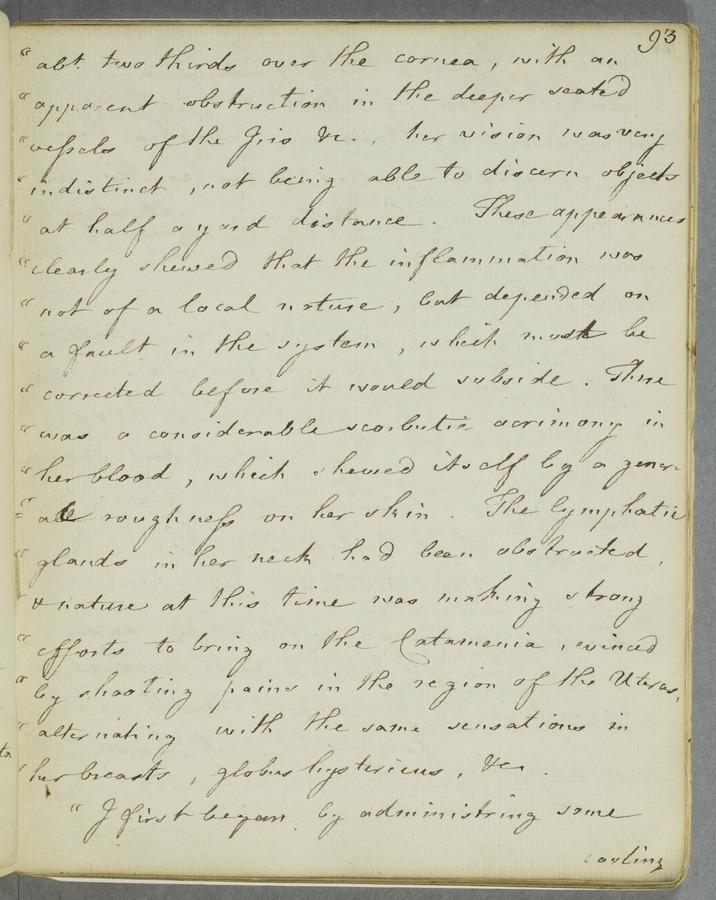 93
“abt. two thirds over the cornea, with an
“apparent obstruction in the deeper seated
“vessels of the Iris &c., her vision was very
“indistinct, not being able to discern objects
“at half a yard distance. These appearances
“clearly shewed that the inflammation was
“not of a local nature, but depended on
“a fault in the system, which must be
“corrected before it would subside. There
“was a considerable scorbutic acrimony in
“her blood, which shewed itself by a gener-
“=al roughness on her skin. The lymphatic
“glands in her neck had been obstructed,
“& nature at this time was making strong
“efforts to bring on the Catamenia, evinced
“by shooting pains in the region of the Uterus,
“alternating with the same sensations in
“her breasts, globus hystericus, &c.
“I first began by administring some
cooling